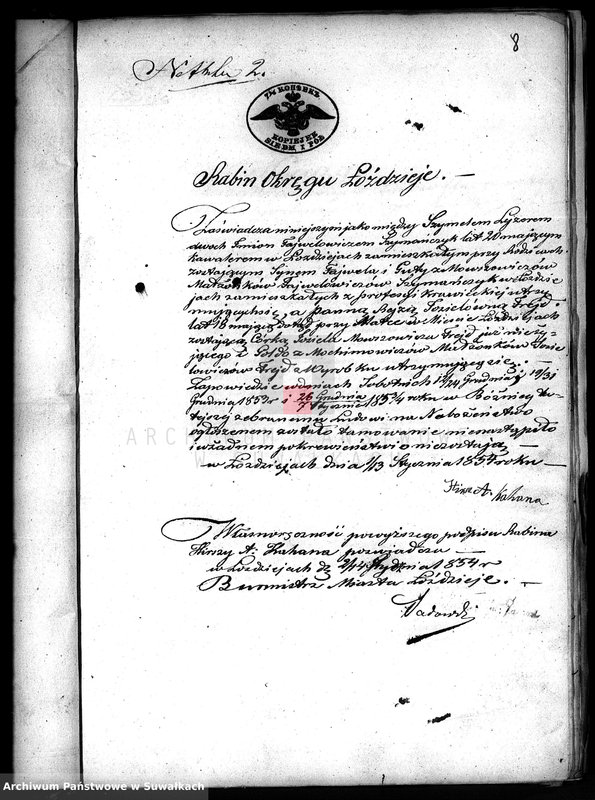 8
No Aktu 2.
7½ КОПѢЕКЪ
KOPIEJEK
SIEDM I PÓŁ
Rabin Okręgu Łoździeje. —
Zaświadcza niniejszym jako między Szymelem Lyzerem
dwoch Imion Fajwelowiczem Szymańczyk lat 20 mającym
kawalerem w Łozdziejach zamieszkałym przy Rodzicach
zostającym Synem Fajwela i Gutty z Mowszowiczów
Małżonków Fajwelowiczów Szymańczyk w Łoździe
jach zamieszkałych z professyi krawieckiej utrzy
mujących się, a panną Sejną Joselowną Frejd
lat 18 mającą dotąd przy Matce w Mieście Łozdziejach
zostającą, Córką Josiela Mowszowicza Frejd już nieży-
jącego i Gołdo z Mochimowiczów Małżonków Josie
lowiczów Frejd z Wyrobku utrzymującej się. —
Zapowiedzie w dniach Sobotnich 12/24 Grudnia, 19/31
Grudnia 1853 r i 26 Grudnia/7 Stycznia 1854 roku w Bożnicy tu-
tejszej zebranemu Ludowi na Nabożeństwo
ogłoszenem zostało tamowanie nienastąpiło
i w żadnem pokrewieństwie niezostają
— w Łoździejach dnia 1/13 Stycznia 1854 roku —
Hirsz A. Kahana
Własnoręczność powyższego podpisu Rabina
Hirszy A: Kahana poświadcza —
w Łozdziejach d. 2/14 Stycznia 1854 r
Burmistrz Miasta Łoździeje. —
Sadowski
Archiwum Państwowe w Suwałkach